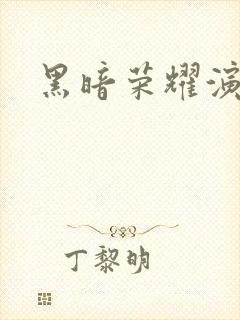 黑暗荣耀演
丁黎明